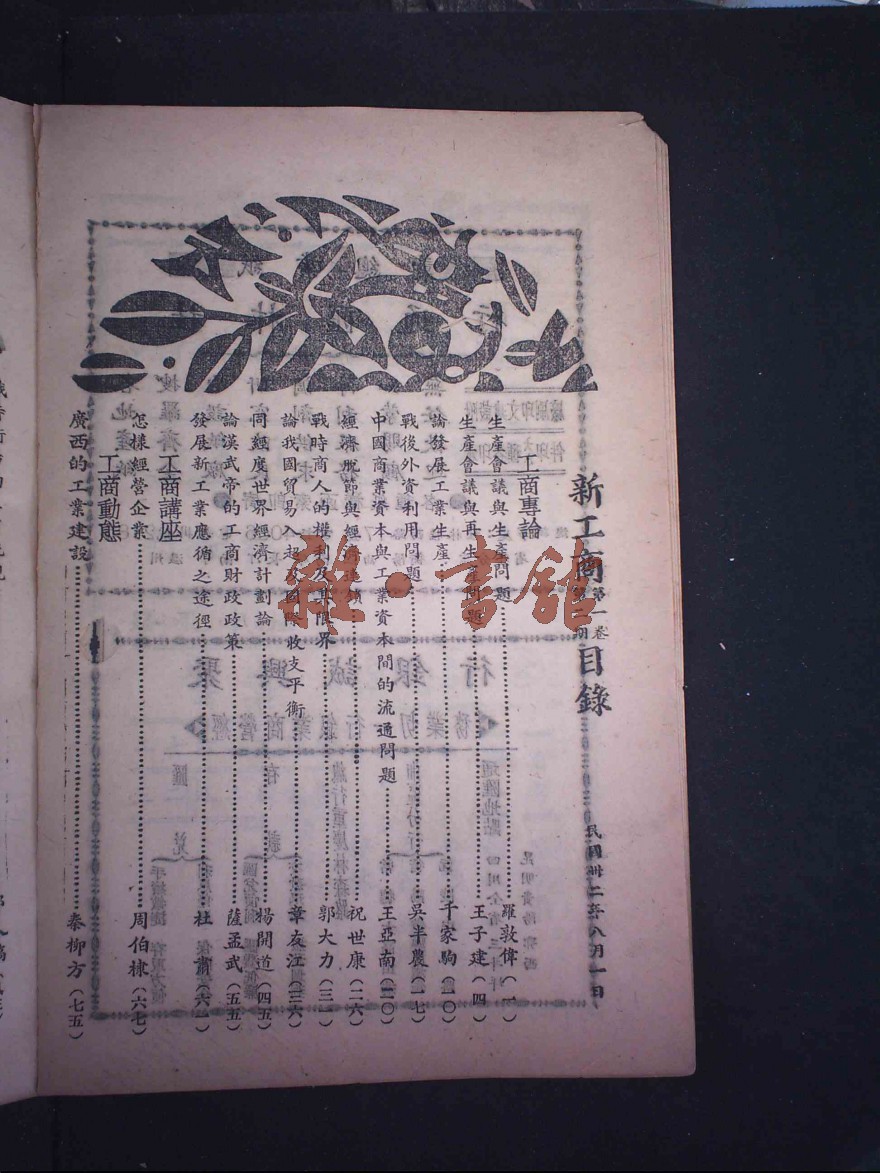 新工商第一卷第二期目錄
民國卅二年八月一日
工商專論
生產會議與生產問題……羅敦偉(一)
生產會議與再生產問題……王子建(四)
論發展工業生產……千家駒(一〇)
戰後外資利用問題……吳半農(一七)
中國商業資本與工業資本間的流通問題……王亞南(二〇)
經濟脫節與經濟連鎖……祝世康(二六)
戰時商人的權利及其限界……郭大力(三一)
論我國貿易入超及國際收支平衡……章友江(三六)
同經度世界經濟計劃論……楊開道(四五)
論漢武帝的工商財政政策……薩孟武(五五)
發展新工業應循之途徑……杜肅(六一)
工商講座
怎樣經營企業……周伯棣(六七)
工商動態
廣西的工業建設……秦柳方(七五)
雜·書館